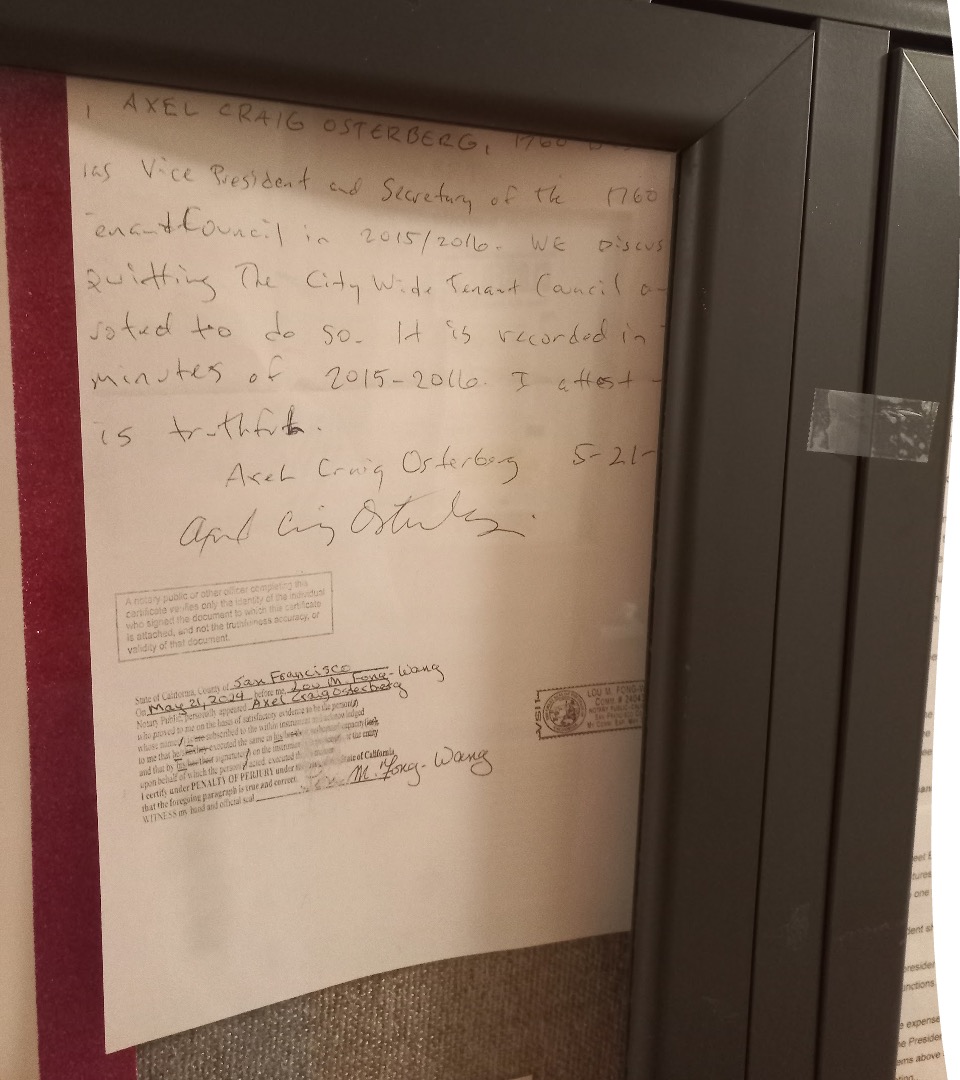 I AXEL CRAIG OSTERBERG, 1760
was Vice President and Secretary of the 1760
Tenant Council in 2015/2016. WE DISCUS
Quitting The City Wide Tenant Council
voted to do so. It is recorded in
minutes of 2015-2016. I attest
is truthful.
Axel Craig Osterberg 5-21-
A notary public or other officer completing this
certificate verifies only the identity of the individual
who signed the document to which this certificate
is attached, and not the truthfulness accuracy, or
validity of that document.
State of California, County of San Francisco
On May 21, 2024 before me, Lou M. Fong-Wang
Notary Public, personally appeared Axel Craig Osterberg
who proved to me on the basis of satisfactory evidence to be the person(s)
whose name(s) is/are subscribed to the within instrument and acknowledged
to me that he/she/they executed the same in his/her/their authorized capacity(ies),
and that by his/her/their signature(s) on the instrument the person(s), or the entity
upon behalf of which the person(s) acted, executed the instrument.
I certify under PENALTY OF PERJURY under the laws of the State of California
that the foregoing paragraph is true and correct.
WITNESS my hand and official seal.
Lou M. Fong-Wang
LOU M. FONG-W
one
expense
ems above